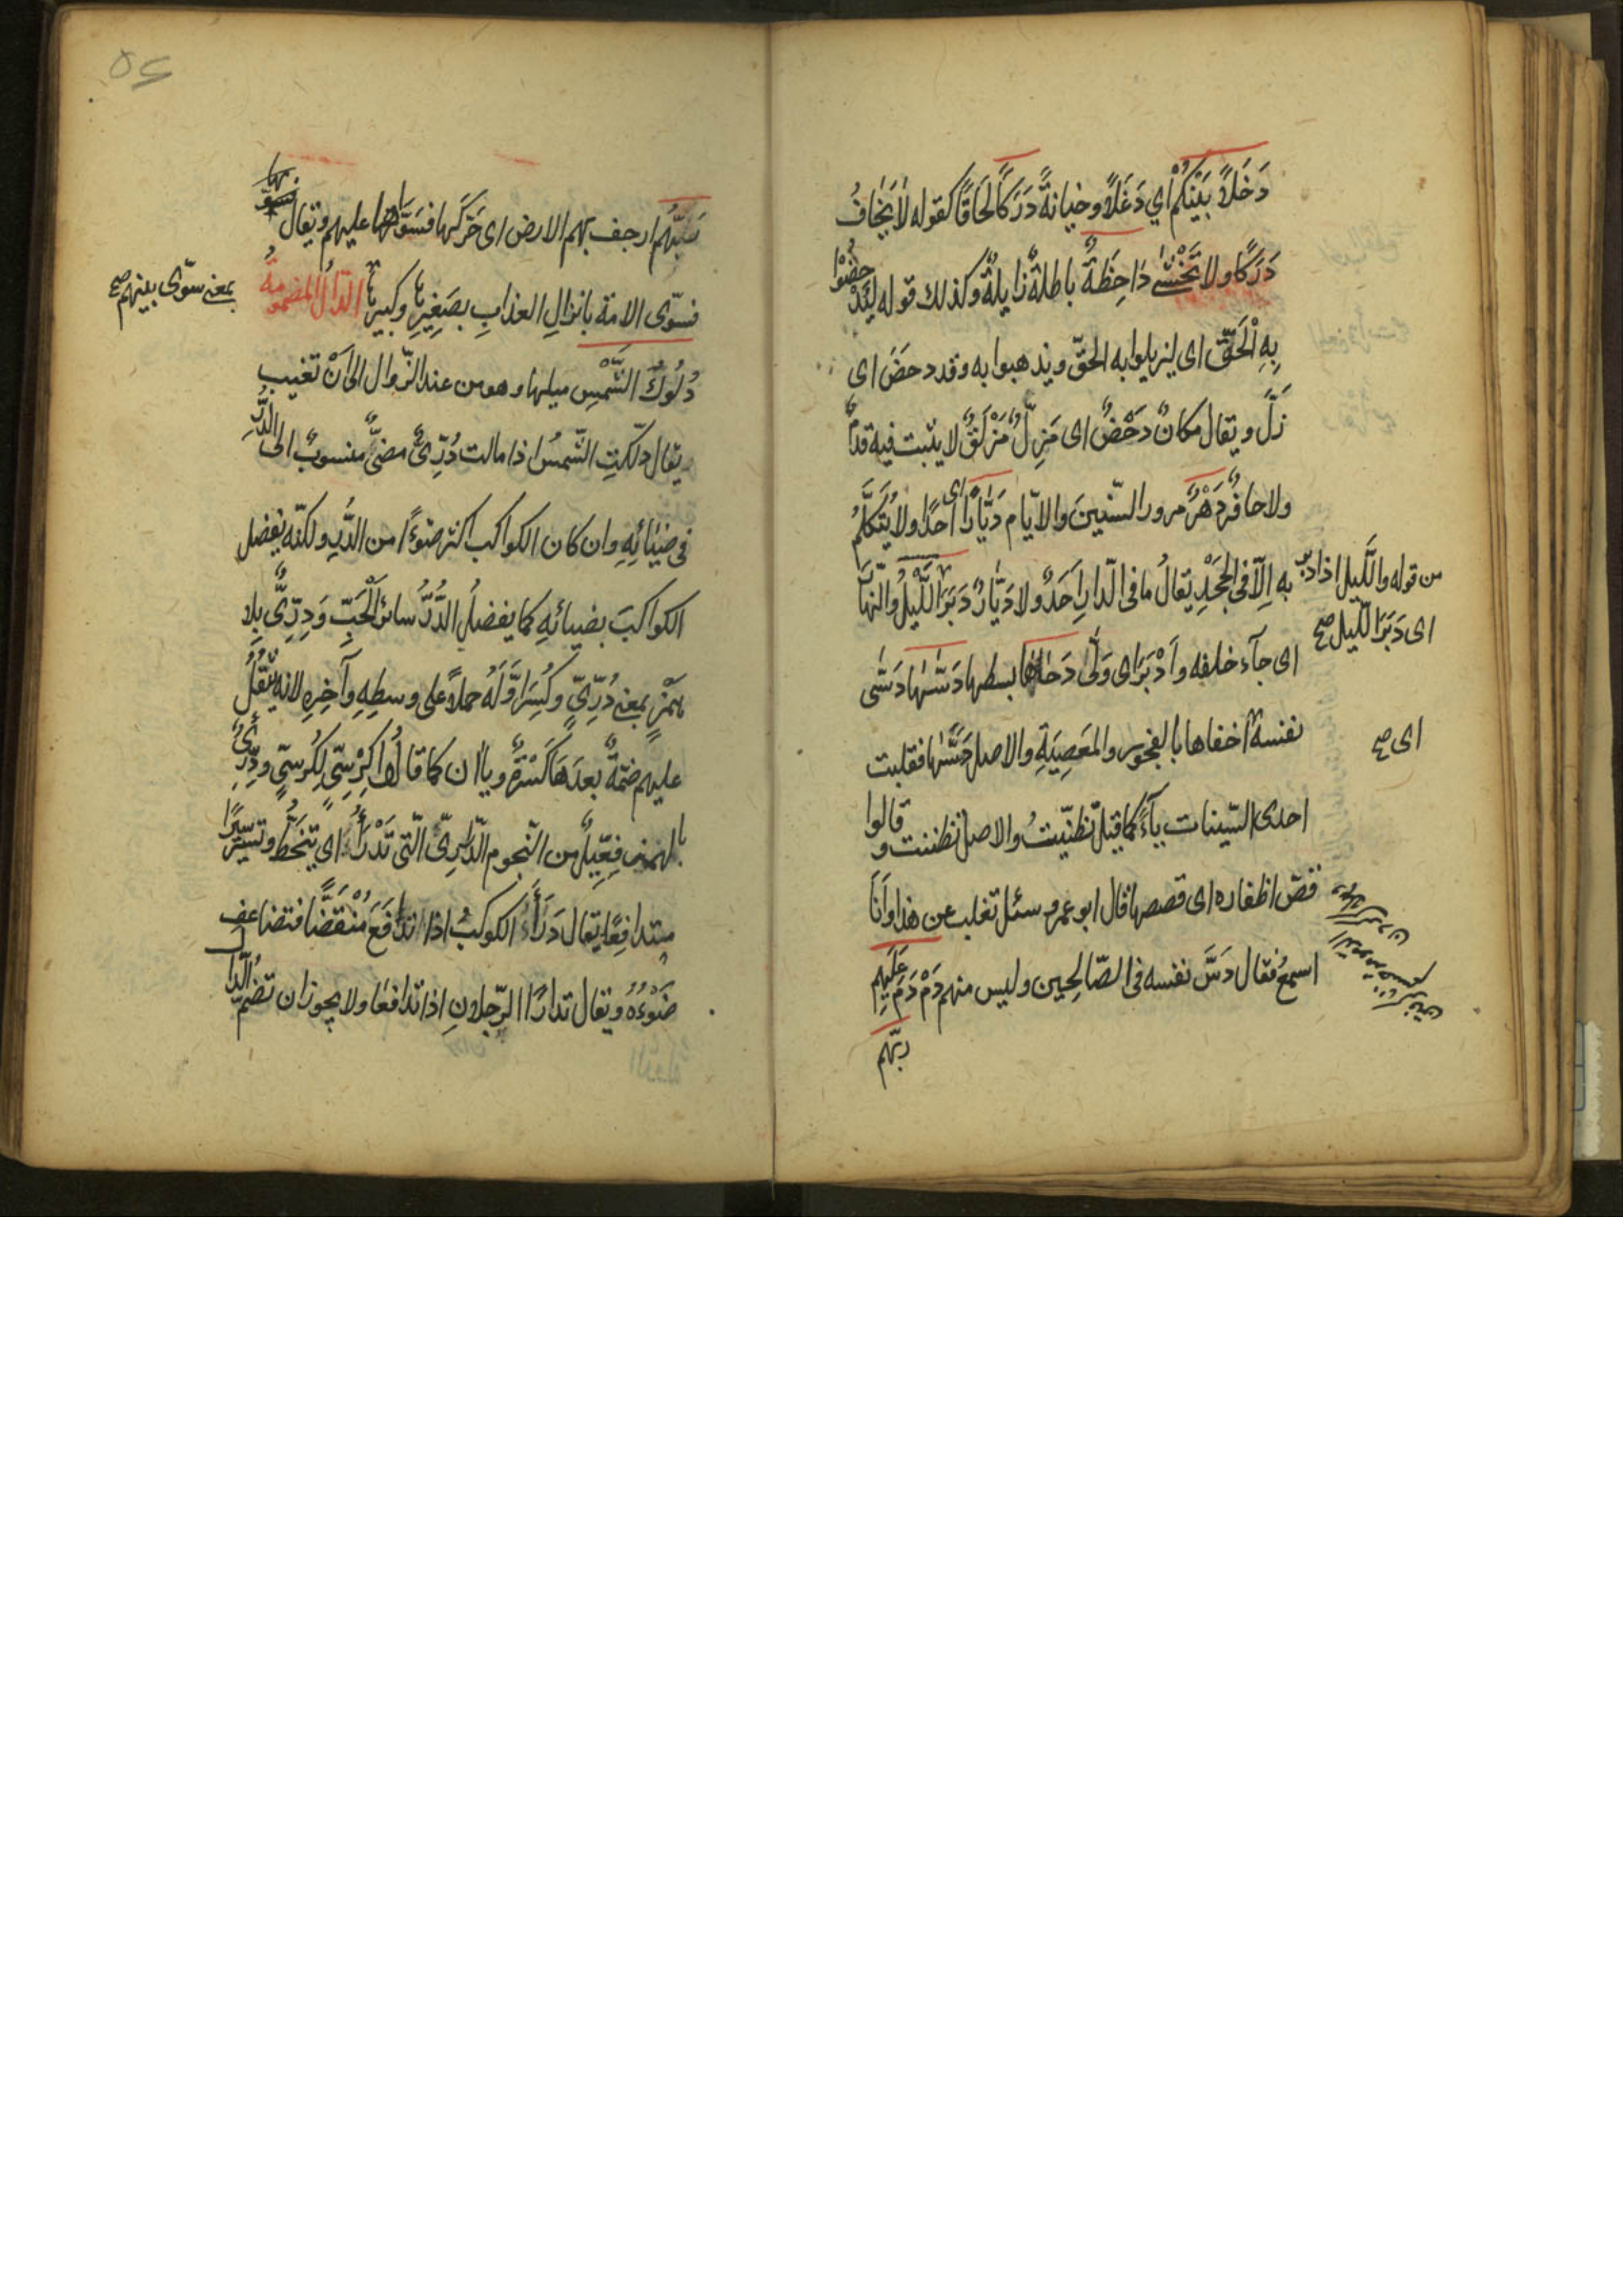 دَخَلاً بَيْنَكُمْ أي دَغَلاً وخيانةً دَرَكًا لَحَاقًا كقوله لا يَخَافُ
دَرَكًا ولا تَخْشى دَاحِظَةٌ باطلةٌ زايلةٌ وكذلك قوله ليُدْحِضُوْا
بِهِ الْحَقَّ اى ليزيلوا به الحقّ ويذهبوا به وقد دحَضَ اى
زَلَّ ويقال مكانٌ دَحْضٌ اى مَزِلٌّ مَزْلَقٌ لا يثبت فيه قدمٌ
ولا حافرٌ دَهْرٌ مرور السّنينَ والايّام دَيَّارًا اى أحَدًا ولا يُتَكَلَّمُ
به اِلاّ فى الجَحْدِ يقالُ ما فى الدّارِ اَحَدٌ ولا دَيَّارٌ دَبَرَ اللَّيْلُ والنّهارَ
من قوله والَّليل اذا دبر
اى دَبَرَ الّليل صح
اى جآء خلفه وأَدْبَرَ اى وَلّٰى دَحٰهَا بسطها دَسّٰهَا دَسّٰى
نفسه أخفاها بالفجور والمَعصِيَةِ والاصل دَسَّسَهَا فقلبت
اى صح
احدى السّينات يآءً كما قيل تظنّيتُ والاصل تظننت وقالوا
قصّ اظفاره اى قصصها قال ابو عمرو سئل ثعلب عن هذا وأنَا
اسمعُ فقال دَسَّ نفسه فى الصّالحِين وليس منهم دَمْدَمَ عَلَيهِم
ربّهم
رَبّهُم ارجف بهم الارض اى حَرَّكَها فسَوَّاها عليهم ويقال
فسوّى الامة بانزالِ العذابِ بصَغِيرِها وكبيرِها الدّالُ المضمومةُ
بمعنى سوّى بينهم صح
دُلُوكُ الشَّمْسِ ميلها وهو من عند الزّوال الى اَنْ تغيب
يقال دلكتِ الشّمسُ اذا مالت دُرِّىٌّ مضىٌّ منسوبٌ الى الدُّرِّ
فى ضيَائِهِ وان كان الكواكب اكثر ضوءًا من الدُّرِ ولكنّه يفضل
الكواكبَ بضيائِهِ كما يفضلُ الدُّرُّ سائرَ الْحَبِّ وَدِرِّىٌّ بلا
هَمْزٍ بمعنى دُرِّىٍّ وكُسِرَ اَوَّلُهُ حملاً على وسطِهِ وآخِرِهِ لانه يَثْقُلُ
عليهم ضمّةٌ بعدَهَا كَسْرَةٌ وياان كما قالُوا كِرْسِىّ لِكُرسىٍّ ودِرِّئٌ
بالهمز فِعِّيلٌ من النّجوم الدّرارِىّ الّتى تَدْرَأُ اى يَنْحَطُّ وتسيّرُ سيرًا
متدافِعًا يقال دَرَأَ الكوكبُ اذا تدَافَعَ مُنْقَضًّا فتضاعف
ضَوْءُهُ ويقال تدارَأ الرّجلانِ اذا تدافعَا ولا يجوز ان تضمّ الدّال